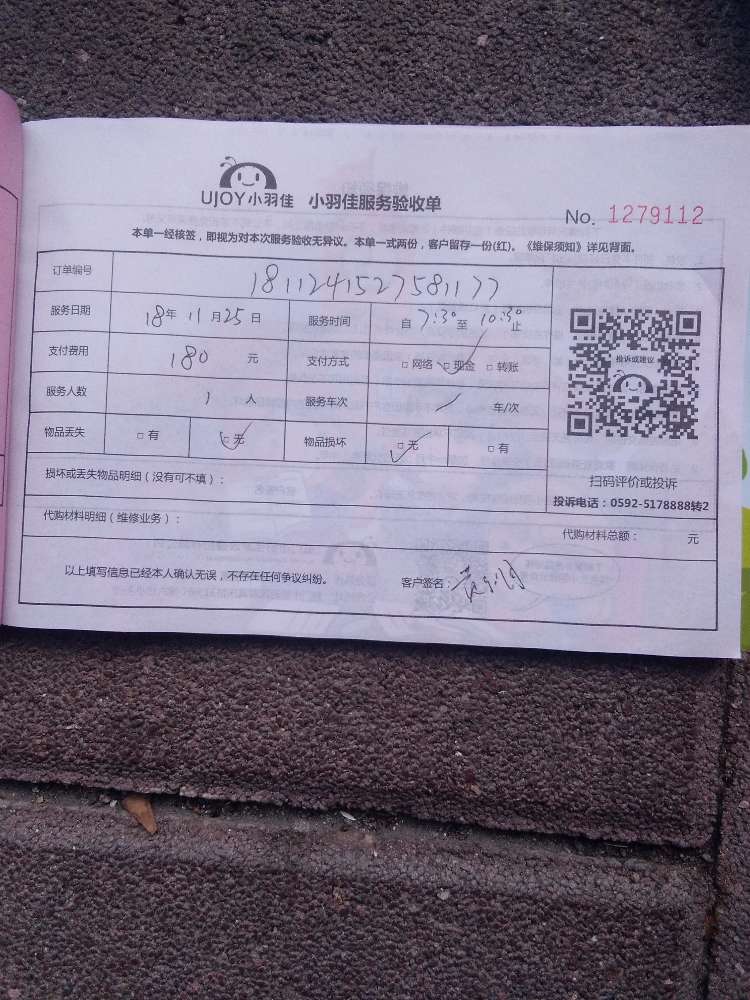 UJOY小羽佳 小羽佳服务验收单
No. 1279112
本单一经核签，即视为对本次服务验收无异议。本单一式两份，客户留存一份(红)。《维保须知》详见背面。
订单编号 1811241527581177
服务日期 18年 11月25日 服务时间 自 7:30 至 10:30 止
支付费用 180 元 支付方式 □网络 □现金 □转账
服务人数 1 人 服务车次 / 车/次
物品丢失 □有 □无 物品损坏 □无 □有
投诉或建议
扫码评价或投诉
投诉电话：0592-5178888转2
损坏或丢失物品明细（没有可不填）：
代购材料明细（维修业务）：
代购材料总额： 元
以上填写信息已经本人确认无误，不存在任何争议纠纷。 客户签名：